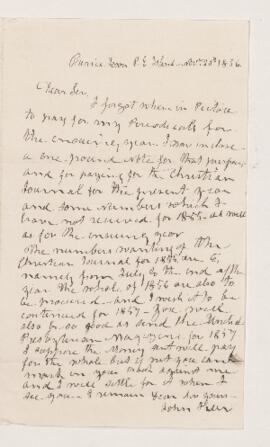 P. E. Island Novr 20th 1856
Dear Sir,
I forgot when in Pictou
to pay for my Periodicals for
the ensuing year I now inclose
a one pound note for that purpose
and for paying for the Christian
Journal for the present year
and some numbers which I
have not received for 1855 as well
as for the ensuing year
The numbers wanting of the
Christian Journal for 1855 are 6,
namely from July to the end of the
year the whole of 1856 are also to
be procured and I wish it to be
continued for 1857 You will
also be so good as send the United
Presbyterian Magazine for 1857
I suppose the Money sent will pay
for the whole but if not you can
mark in your against me
and I will settle for it when I
see you I remain Dear Sir yours
John